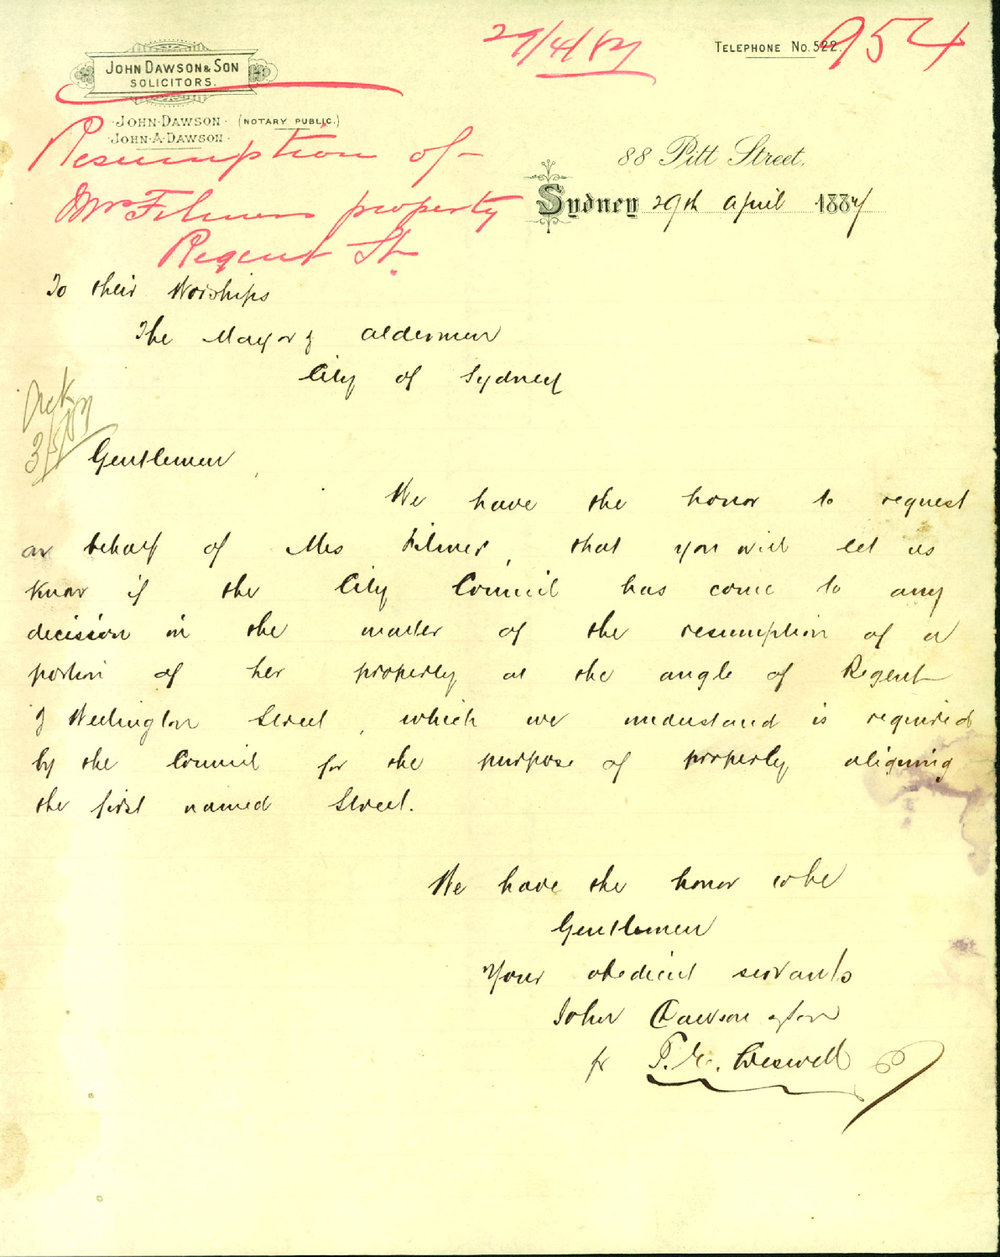 29/4/87
TELEPHONE No. 522.
954
JOHN DAWSON & SON
SOLICITORS.
JOHN DAWSON (NOTARY PUBLIC.)
JOHN A. DAWSON
Resumption of
Mrs Filmers property
Regent St.
88 Pitt Street,
Sydney 29th April 1887
To their Worships
The Mayor & Aldermen
City of Sydney
Ack
3/5/87
Gentlemen
We have the honor to request
on behalf of Mrs Filmer, that you will let us
know if the City Council has come to any
decision in the matter of the resumption of a
portion of her property at the angle of Regent
& Wellington Street, which we understand is required
by the Council for the purpose of properly aligning
the first named Street.
We have the honor to be
Gentlemen
Your obedient servants
John Dawson & Son
pr P. E. Creswell